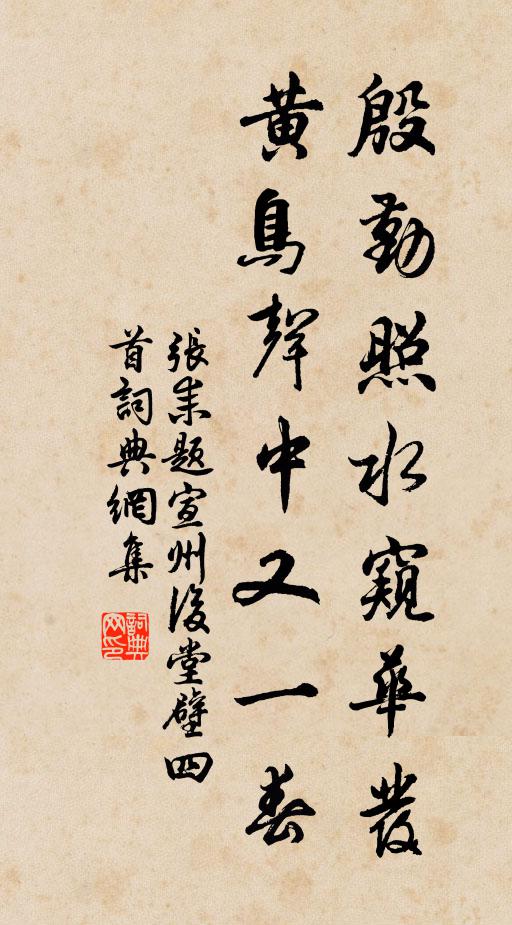 殷勤照水窺華發
黃鳥聲中又一春
張耒題宣州後堂壁四
首詞典網集
詞典网印